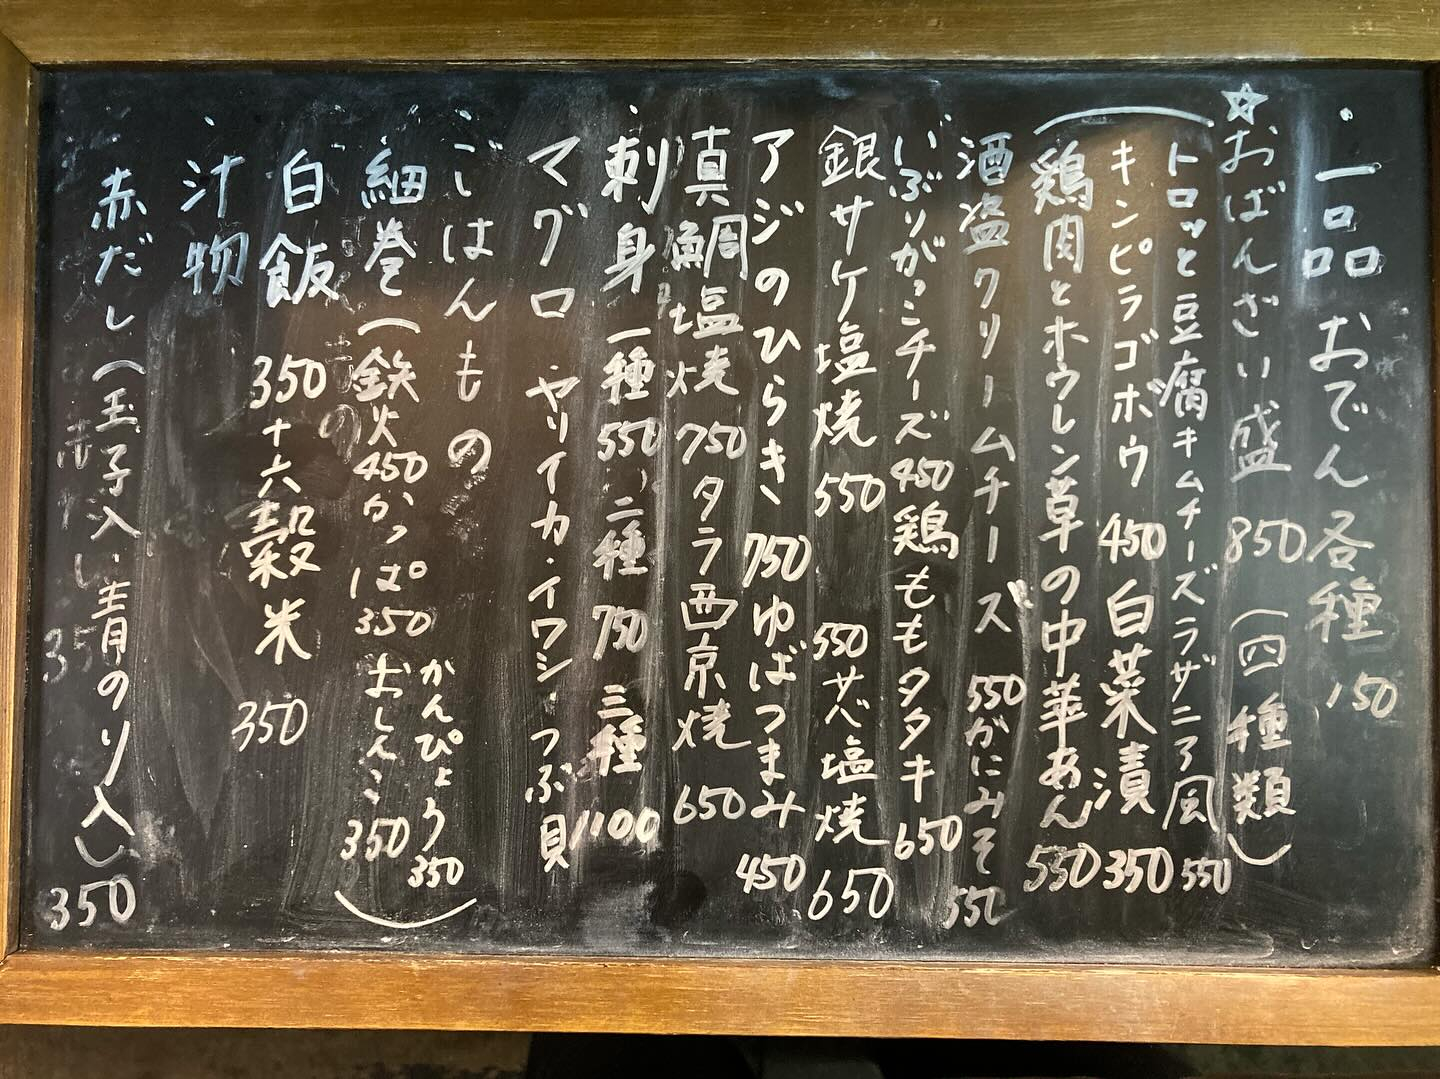 ・一品 おでん各種 150
☆おばんざい盛 850 (四種類)
トロッと豆腐キムチーズラザニア風 550
キンピラゴボウ 450 白菜漬 350
鶏肉とホウレン草の中華あん 550
酒盗クリームチーズ 550 がにみそ 550
いぶりがっこチーズ 450 鶏ももタタキ 650
銀サケ塩焼 550 サバ塩焼 650
アジのひらき 750 ゆばつまみ 450
真鯛塩焼 750 タラ西京焼 650
・刺身 一種 550 二種 750 三種 1100
マグロ・ヤリイカ・イワシ・つぶ貝
・ごはんもの
細巻 (鉄火 450 かっぱ 350 おしんこ 350 かんぴょう 350)
白飯 350 十六穀米 350
・汁物
赤だし(玉子入り 青のり入り) 350